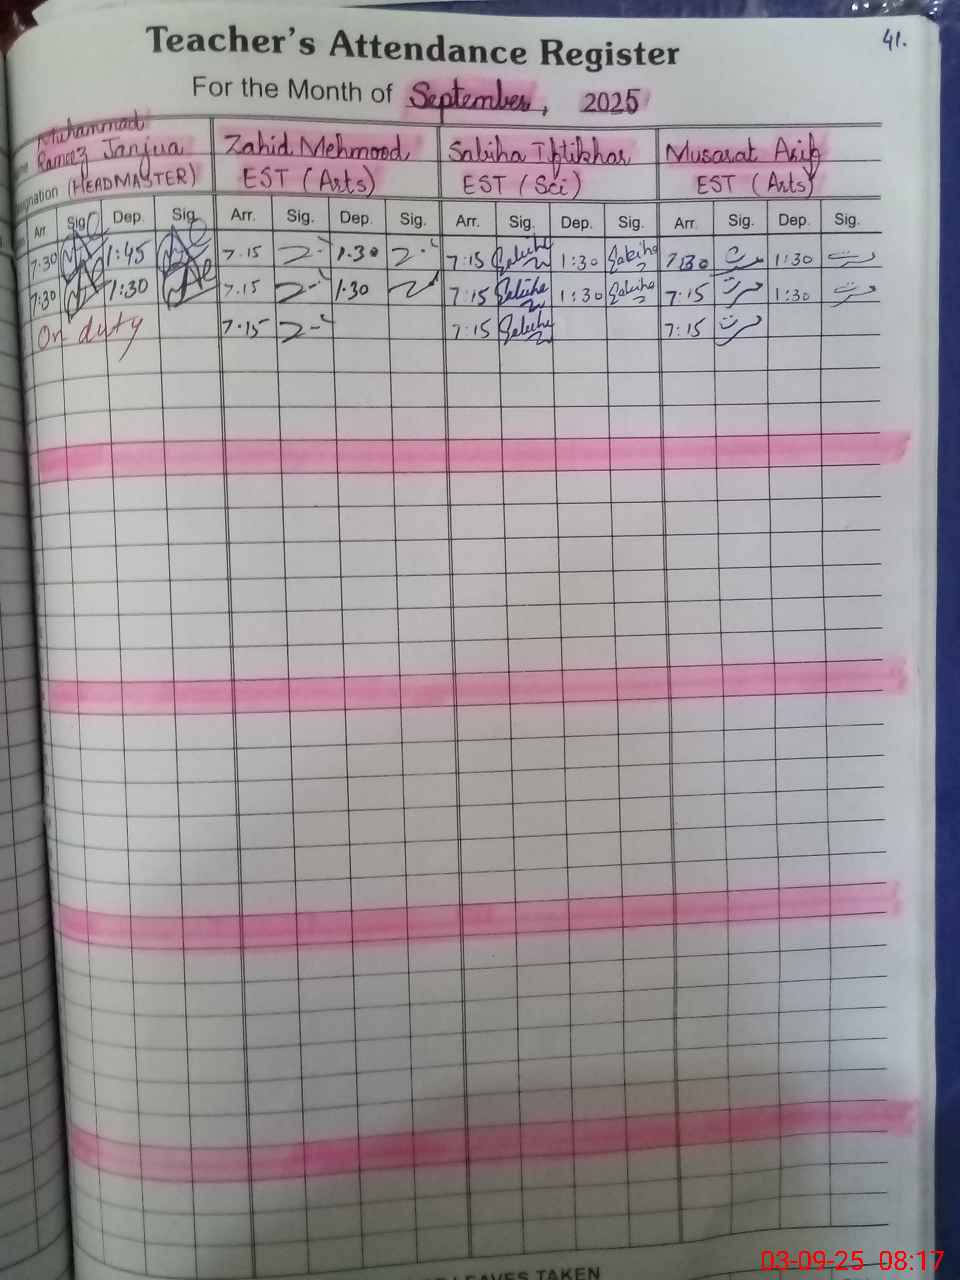 41.
Teacher's Attendance Register
For the Month of September, 2025
Muhammad
Rameez Janjua Zahid Mehmood Sabiha Iftikhar Musarat Asif
(HEADMASTER) EST (Arts) EST (Sci) EST (Arts)
Arr Sig Dep. Sig. Arr. Sig. Dep. Sig. Arr. Sig. Dep. Sig. Arr. Sig. Dep. Sig.
7:30 1:45 7.15 1.30 7:15 Sabiha 1:30 Sabiha 7:30 مسرت 1:30 مسرت
7:30 1:30 7.15 1.30 7:15 Sabiha 1:30 Sabiha 7:15 مسرت 1:30 مسرت
On duty 7.15 7:15 Sabiha 7:15 مسرت
LEAVES TAKEN
03-09-25 08:17